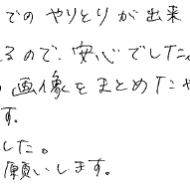 でのやりとりが出来
るので、安心でした。
画像をまとめたや
す。
した。
願いします。